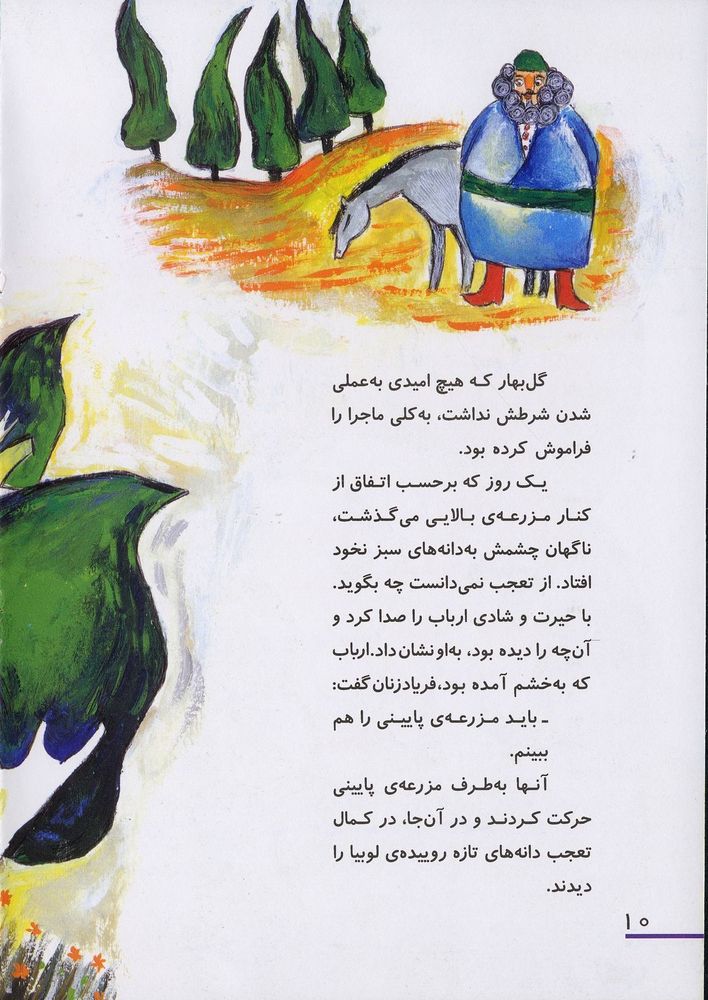 گل‌بهار که هیچ امیدی به‌عملی
شدن شرطش نداشت، به‌کلی ماجرا را
فراموش کرده بود.
یک روز که برحسب اتفاق از
کنار مزرعه‌ی بالایی می‌گذشت،
ناگهان چشمش به‌دانه‌های سبز نخود
افتاد. از تعجب نمی‌دانست چه بگوید.
با حیرت و شادی ارباب را صدا کرد و
آن‌چه را دیده بود، به‌او نشان داد. ارباب
که به‌خشم آمده بود، فریادزنان گفت:
ـ باید مزرعه‌ی پایینی را هم
ببینم.
آنها به‌طرف مزرعه‌ی پایینی
حرکت کردند و در آن‌جا، در کمال
تعجب دانه‌های تازه روییده‌ی لوبیا را
دیدند.
۱۰